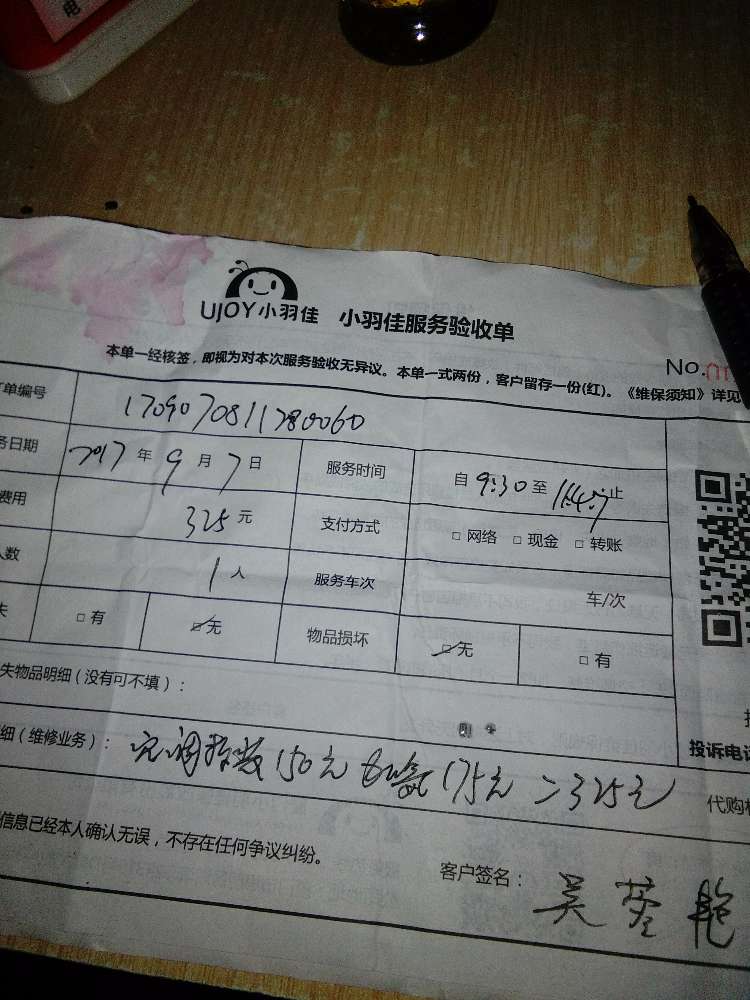 电
UJOY小羽佳 小羽佳服务验收单
No.
本单一经核签，即视为对本次服务验收无异议。本单一式两份，客户留存一份(红)。《维保须知》详见
单编号 1709070811780060
务日期 2017年9月7日 服务时间 自9:30至 止
费用 325元 支付方式 □网络 □现金 □转账
人数 1人 服务车次 车/次
失 □有 □无 物品损坏 □无 □有
失物品明细（没有可不填）：
投诉电话
细（维修业务）： 空调 150元 175元 =325元
代购
信息已经本人确认无误，不存在任何争议纠纷。
客户签名： 吴 艳